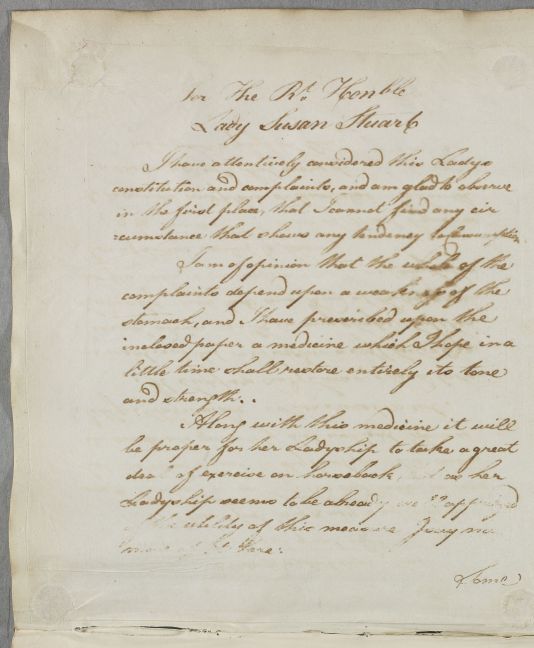 For The Rt. Honble
Lady Susan Stuart
I have attentively considered this Ladys
constitution and complaints, and am glad to observe
in the first place, that I cannot find any cir
cumstance that shews any tendency to Consumption
I am of opinion that the whole of the
complaints depend upon a weakness of the
stomach, and I have prescribed upon the
inclosed paper a medicine which I hope in a
little time shall restore entirely its tone
and strength..
Along with this medicine it will
be proper for her Ladyship to take a great
deal of exercise on horseback, as her
Ladyship seems to be already apprized
of the utility of this measure I say no
more of it here.
Some